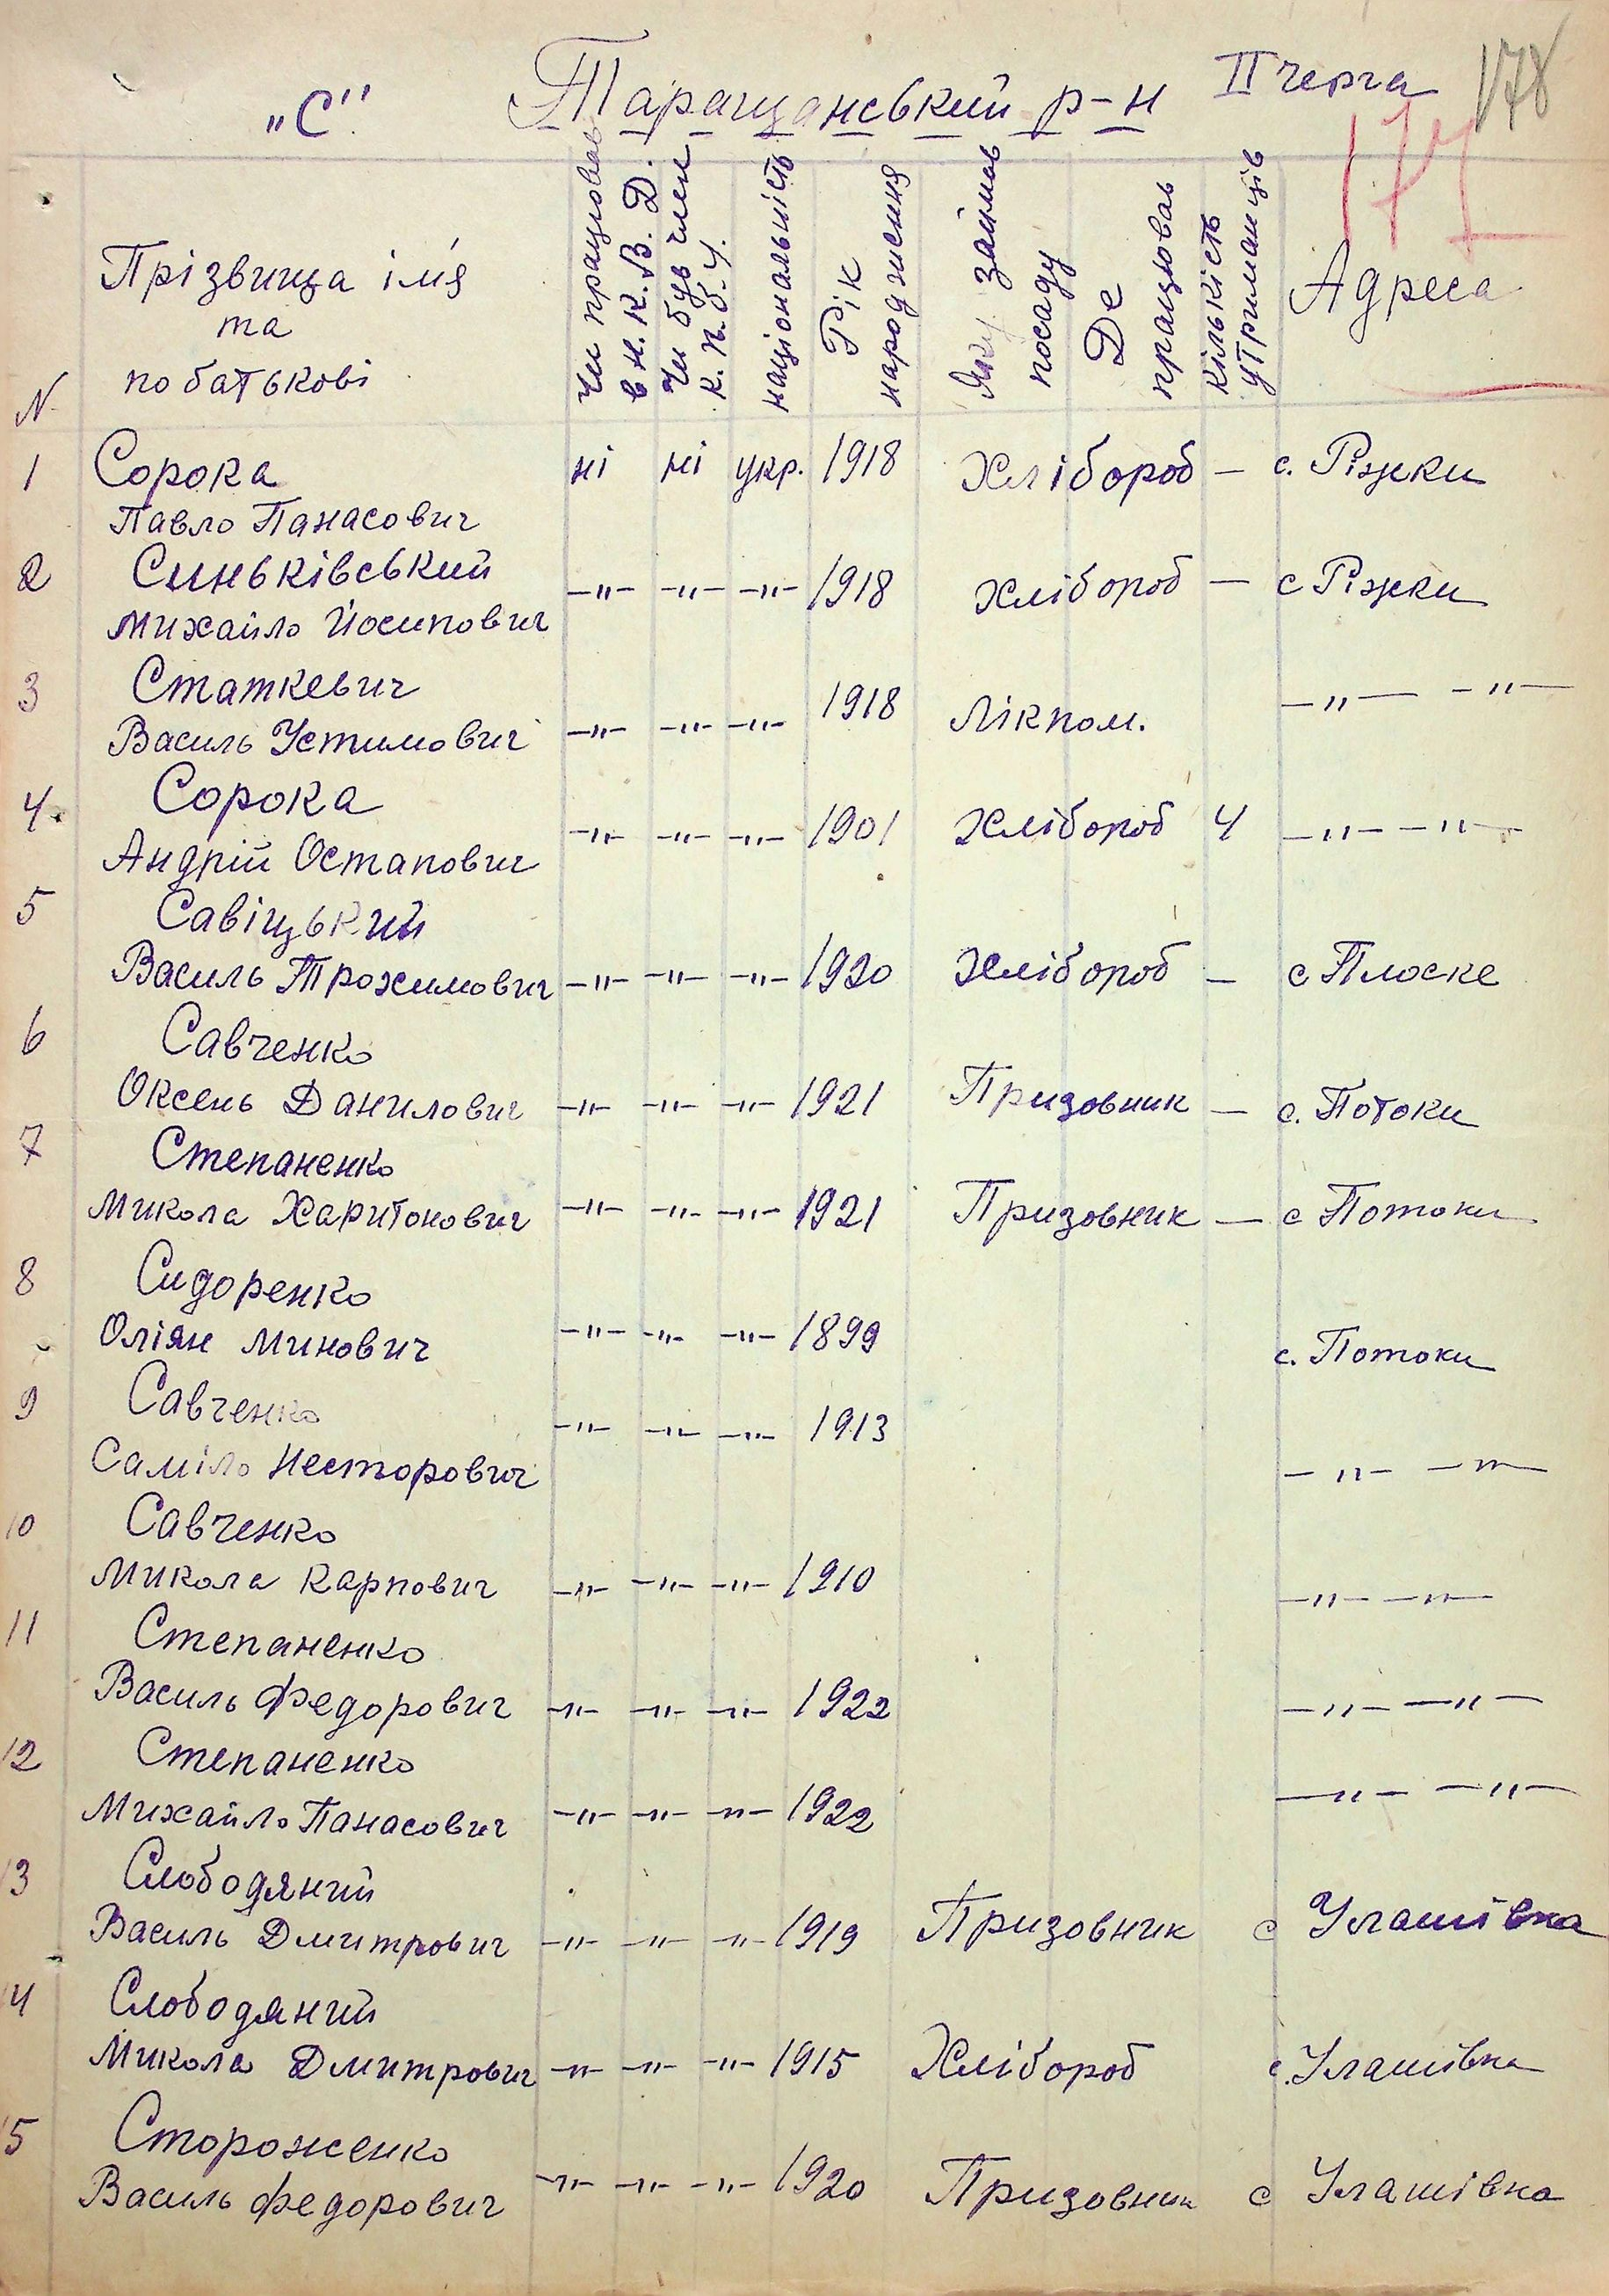 „С" Таращанський р-н II черга 178
174
N Прізвища ім'я та по батькові
Чи працював в Н.К.В.Д.
Чи був член К.П.б.У.
національність
Рік народження
Яку займав посаду
Де працював
кількість утриманців
Адреса
1 Сорока ні ні укр. 1918 Хлібороб – с. Ріжки
Павло Панасович
2 Синьківський –"– –"– –"– 1918 Хлібороб – с Ріжки
Михайло Йосипович
3 Статкевич 1918 Лікпом. –"– –"–
Василь Устимович –"– –"– –"–
4 Сорока –"– –"– –"– 1901 Хлібороб 4 –"– –"–
Андрій Остапович
5 Савіцький
Василь Трохимович –"– –"– –"– 1920 Хлібороб – с Плоске
6 Савченко
Оксень Данилович –"– –"– –"– 1921 Призовник – с. Потоки
7 Степаненко
Микола Харитонович –"– –"– –"– 1921 Призовник – с Потоки
8 Сидоренко
Оліян Минович –"– –"– –"– 1899 с. Потоки
9 Савченко –"– –"– –"– 1913
Саміло Несторович –"– –"–
10 Савченко
Микола Карпович –"– –"– –"– 1910 –"– –"–
11 Степаненко
Василь Федорович –"– –"– –"– 1922 –"– –"–
12 Степаненко
Михайло Панасович –"– –"– –"– 1922 –"– –"–
13 Слободяний
Василь Дмитрович –"– –"– –"– 1919 Призовник с Улашівка
14 Слободяний
Микола Дмитрович –"– –"– –"– 1915 Хлібороб с. Улашівка
15 Стороженко
Василь Федорович –"– –"– –"– 1920 Призовник с Улашівка